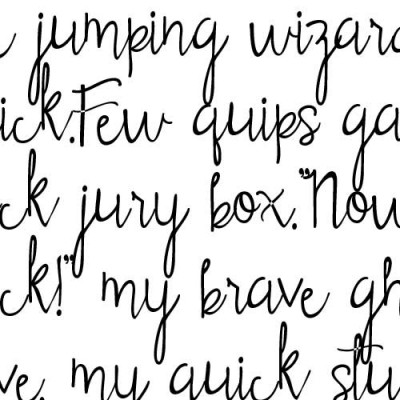 jumping wizard
ick. Few quips ga
ck jury box."Now
ck!" my brave gh
ve. my quick stu